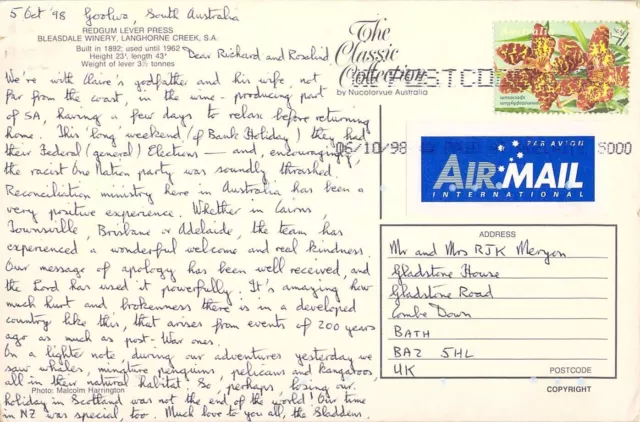 5 Oct '98 Goolwa, South Australia
REDGUM LEVER PRESS
BLEASDALE WINERY, LANGHORNE CREEK, S.A.
Built in 1892; used until 1962
Height 23', length 43"
Weight of lever 3½ tonnes
Dear Richard and Rosalind
We're with Claire's godfather and his wife, not
far from the coast, in the wine-producing part
of SA, having a few days to relax before returning
home. This 'long' weekend (of Bank Holiday) they had
their Federal (general) Elections — and, encouragingly,
the racist One Nation party was soundly thrashed.
Reconciliation ministry here in Australia has been a
very positive experience. Whether in Cairns,
Townsville, Brisbane or Adelaide, the team has
experienced a wonderful welcome and real kindness.
Our message of apology has been well received, and
the Lord has used it powerfully. It's amazing how
much hurt and brokenness there is in a developed
country like this, that arises from events of 200 years
ago as much as post-War ones.
On a lighter note, during our adventures yesterday we
saw whales, miniture penguins, pelicans and kangaroos
all in their natural habitat. So, perhaps losing our
Photo: Malcolm Harrington
holiday in Scotland was not the end of the world! Our time
in NZ was special, too. Much love to you all, the Sladdens.
The
Classic
Collection
by Nucolorvue Australia
POSTCO
06/10/98
5000
PAR AVION
AIR MAIL
INTERNATIONAL
ADDRESS
Mr and Mrs RJK Meryon
Gladstone House
Gladstone Road
Combe Down
BATH
BA2 5HL
UK
POSTCODE
COPYRIGHT